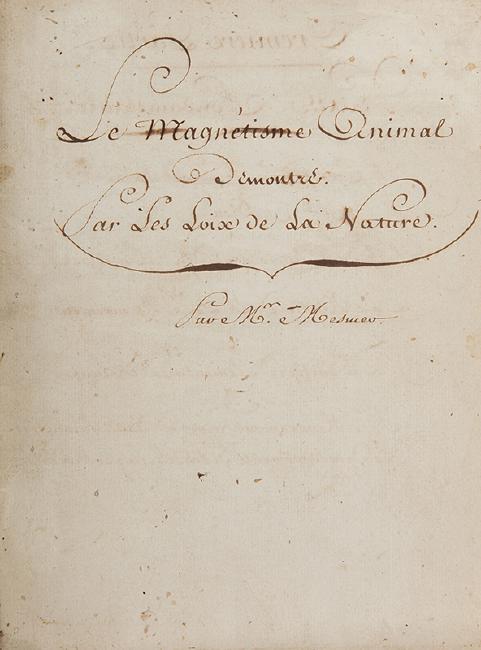 Le Magnétisme Animal
Démontré.
Par Les Loix de La Nature.
Par Mr. Mesmer.